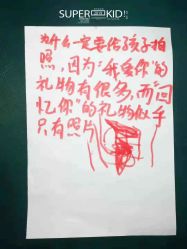 SUPER KID!
为什么一定要给孩子拍
照,因为“我爱你”的
礼物有很多,而“回
忆你”的礼物似乎
只有照片